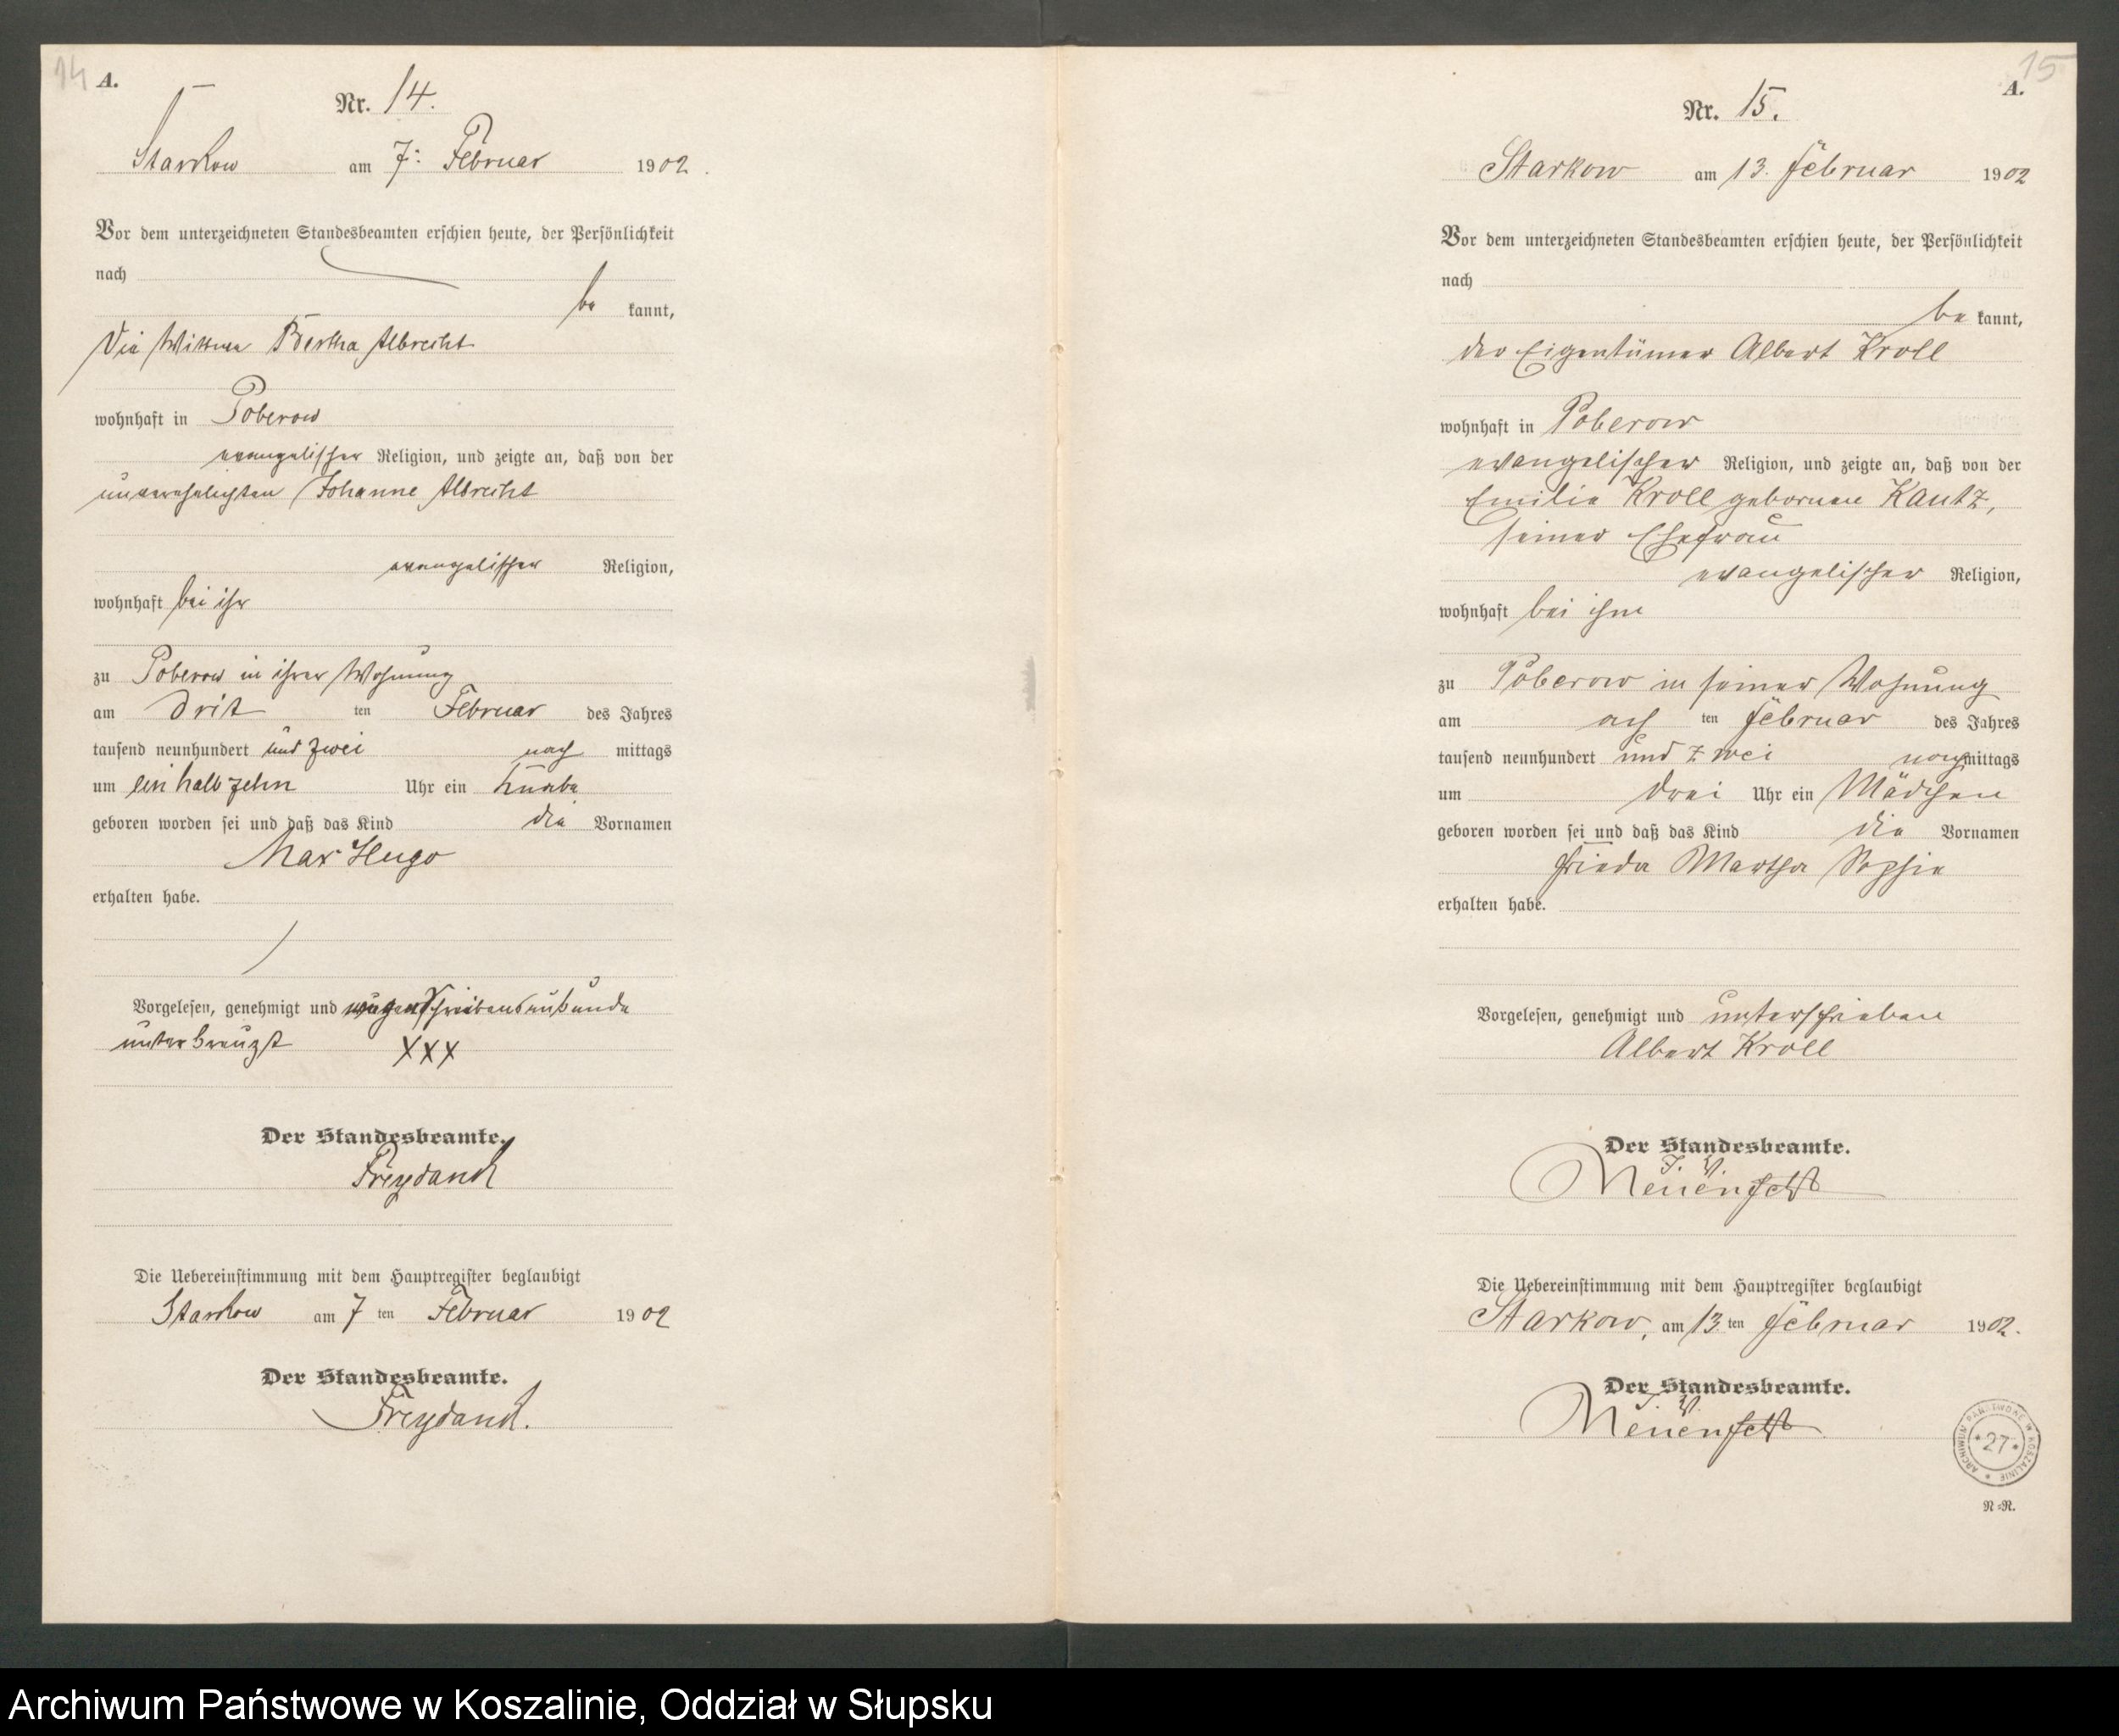 14 A.
Nr. 14.
Starkow am 7. Februar 1902.
Vor dem unterzeichneten Standesbeamten erschien heute, der Persönlichkeit
nach
be kannt,
Die Wittwe Bertha Albrecht
wohnhaft in Poberow
evangelischer Religion, und zeigte an, daß von der
unverehelichten Johanne Albrecht
evangelischer Religion,
wohnhaft bei ihr
zu Poberow in ihrer Wohnung
am drit ten Februar des Jahres
tausend neunhundert und zwei nach mittags
um ein halb zehn Uhr ein Knabe
geboren worden sei und daß das Kind die Vornamen
Max Hugo
erhalten habe.
Vorgelesen, genehmigt und wegen Schreibensunkunde
unterkreuzt XXX
Der Standesbeamte.
Freydanck
Die Uebereinstimmung mit dem Hauptregister beglaubigt
Starkow am 7 ten Februar 1902
Der Standesbeamte.
Freydanck.
15
A.
Nr. 15.
Starkow am 13. Februar 1902
Vor dem unterzeichneten Standesbeamten erschien heute, der Persönlichkeit
nach
be kannt,
der Eigentümer Albert Kroll
wohnhaft in Poberow
evangelischer Religion, und zeigte an, daß von der
Emilie Kroll gebornen Kautz,
seiner Ehefrau
evangelischer Religion,
wohnhaft bei ihm
zu Poberow in seiner Wohnung
am ach ten Februar des Jahres
tausend neunhundert und zwei nachmittags
um drei Uhr ein Mädchen
geboren worden sei und daß das Kind die Vornamen
Frieda Martha Sophie
erhalten habe.
Vorgelesen, genehmigt und unterschrieben
Albert Kroll
Der Standesbeamte.
J. V.
Die Uebereinstimmung mit dem Hauptregister beglaubigt
Starkow, am 13. ten Februar 1902.
Der Standesbeamte.
J. V.
ARCHIWUM PAŃSTWOWE W KOSZALINIE * 27 *
N=R.
Archiwum Państwowe w Koszalinie, Oddział w Słupsku